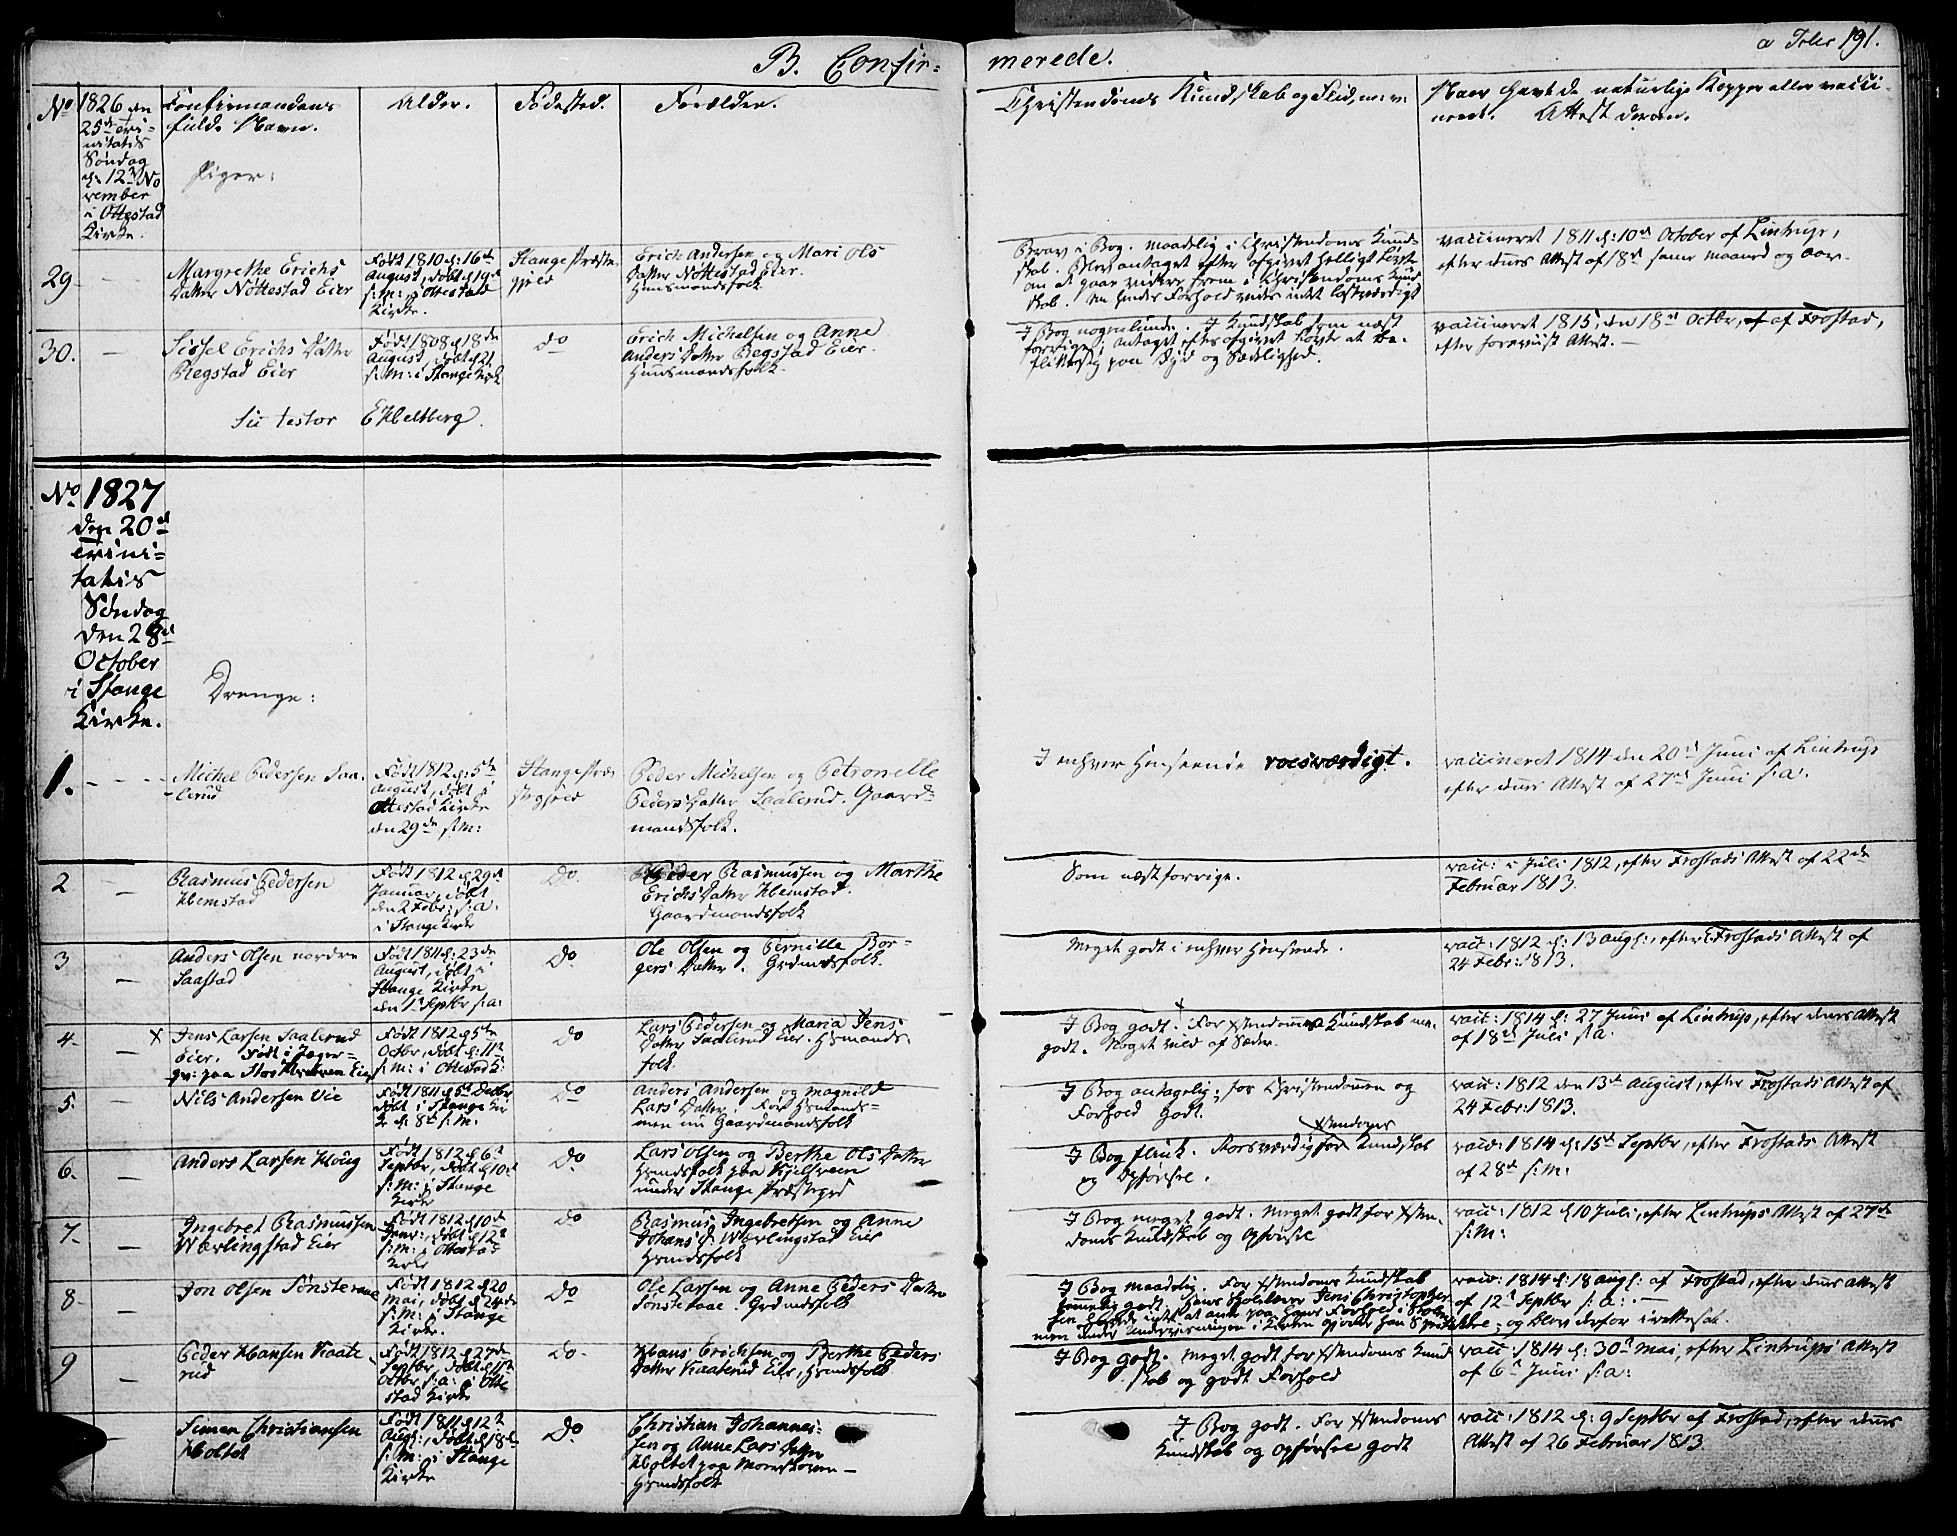 B. Confir=
merede.
a Tolv 191.
No
1826 den
25de Tri-
nitatis
Søndag
d: 12te No
vember
i Ottestad
Kirke.
Confirmandens
fulde Navn.
Piger:
Alder.
Fødested.
Forældre.
Christendoms Kundskab og Flid, m: v:
Naar havt de naturlige Kopper eller vacci-
neret. Attest derom.
29
Margrethe Erichs
Datter Nøttestad Eier
Født 1810 d: 16de
August, døbt d: 19de
s: M: i Ottestad
Kirke.
Stange Præste-
gjeld
Erich Andersen og Mari Ols
Datter Nøttestad Eier.
Huusmandsfolk
Brav i Bog. maadelig i Christendoms Kund-
skab. Blev antaget efter afgivet helligt Løfte
om at gaae videre frem i Christendoms Kund
skab.
vaccineret 1811 d: 10de October af Lintrup,
efter dens Attest af 18de samme maaned og Aar.
30.
Sissel Erichs Datter
Regstad Eier
Født 1808 d 18de
August, døbt d 21
s: M: i Stange Kirke
do
Erich Michelsen og Anne
Anders Datter Regstad Eier.
Huusmandsfolk.
I Bog nogenlunde. I Kundskab som næst
forrige; antaget efter afgivet Løvte at be-
flitte sig paa Dyd og Sædelighed.
vaccineret 1815, den 18de Octbr, af Frostad,
efter foreviist Attest.
Sic testor EHeltberg.
No 1827
den 20de
Trini-
tatis
Søndag
den 28de
October
i Stange
Kirke.
Drenge:
1.
Michel Pedersen Saa-
lerud
Født 1812 d: 5te
August, døbt i
Ottestad Kirke
den 29de s: M:
Stange Præ
stegjeld
Peder Michelsen og Petronelle
Peders Datter Saalerud. Gaard-
mandsfolk.
I enhver Henseende roesværdigt.
vaccineret 1814 den 20de Juni af Lintrup
efter dens Attest af 27de Juni s: a:
2
Rasmus Pedersen
Hemstad
Født 1812 d 29de
Januar, døbt
den 2 Febr: s: a:
i Stange Kirke
Do.
Peder Rasmussen og Marthe
Erichs Datter Hemstad.
Gaardmandsfolk
Som næstforrige.
vacc: i Juli 1812, efter Frostads Attest af 22de
Februar 1813.
3
Anders Olsen nordre
Saastad
Født 1811 d: 23de
August, døbt i
Stange Kirke
den 1te Septbr s: a:
Do
Ole Olsen og Pernille Bor-
gers Datter. Grdmdsfolk.
Meget godt i enhver Henseende.
vacc: 1812 d: 13 Aug:, efter Frostads Attest af
24 Febr: 1813.
4-
x Jens Larsen Saalerud
Eier. Født i Jæger-
Født 1812 d 5te
Octbr, døbt d: 11te
s: M: i Ottestad K:
do
Lars Pedersen og Maria Jens
Datter Saalerud Eier. Hsmands-
folk.
I Bog godt. For Xstendoms Kundskab me-
godt. Noget vild af Sæder.
vacc: 1814 d: 27 Juni af Lintrup, efter dens Attest
af 18de Juli s: a:
5.
Nils Andersen Vie
Født 1811 d 6te Decbr
døbt i Stange Kir
k d: 8de s: M:
Do
Anders Andersen og Magnild
Lars Datter. Før Hsmands-
men nu Gaardmandsfolk
I Bog antagelig; for Christendommen og
Forhold godt.
vacc: 1812 den 13de August, efter Frostads Attest af
24 Febr: 1813.
6.
Anders Larsen Houg
Født 1812 d 6te
Septbr, døbt d 10de
s: M: i Stange
Kirke
Do
Lars Olsen og Berthe Ols Datter
Hsmdsfolk paa Kjelsrein
under Stange Præstegrd
I Bog flink. Roesværdig for Xstendoms Kundskab
og Opførsel.
vacc: 1814 d: 15de Septbr, efter Frostads Attest
af 28de s: M:
7-
Ingebret Rasmussen
Wærlingstad Eier
Født 1812 d 10de
Janr:, døbt d 12te
s: M: i Ottestad
Kirke
do
Rasmus Ingebretsen og Anne
Johans D: Wærlingstad Eier
Hsmdsfolk
I Bog meget godt. Meget godt for Xsten-
doms Kundskab og Opførsel
vacc: 1812 d 10 Juli, efter Lintrups Attest af 27de
s: M:
8-
Jon Olsen Tønsteraae
Født 1812 d 20
Mai, døbt d 24de
s: M: i Stange
Kirke.
Do
Ole Larsen og Anne Peders Datter
Tønsteraae. Grdmdsfolk
I Bog maadelig. For Xstendoms Kundskab
temmelig godt. Hans Skolelærer Jens Christopher
sen havde intet at anke paa hans Forhold i Skolen
men under Underviisningen i Kirken gjorde han Spilopper; og blev derfor irettesat.
vacc: 1814 d: 18 Aug: af Frostad, efter dens Attest
af 12te Septbr s: a:
9
Peder Hansen Kaate-
rud
Født 1812 d 27de
Septbr, døbt d 11te
Octbr s: a: i Otte
stad Kirke
Do.
Hans Erichsen og Berthe Peders
Datter Kaaterud Eier, Hsmdsfolk
I Bog godt. Meget godt for Xstendoms Kund
skab og godt Forhold
vacc: 1814 d: 30te Mai, efter Lintrups Attest
af 6te Juni s: a:
Simen Christiansen
Holtet
Født 1811 d 12te
Aug:, døbt d 18de
s: M: i Stange
Kirke
Do
Christian Johannes-
sen og Anne Lars Datter
Holtet paa
Hsmdsfolk
I Bog godt. For Xstendoms
Kundskab og Opførsel godt
vacc: 1812 d: 9 Septbr af Frostad, efter dens
Attest af 26 Februar 1813